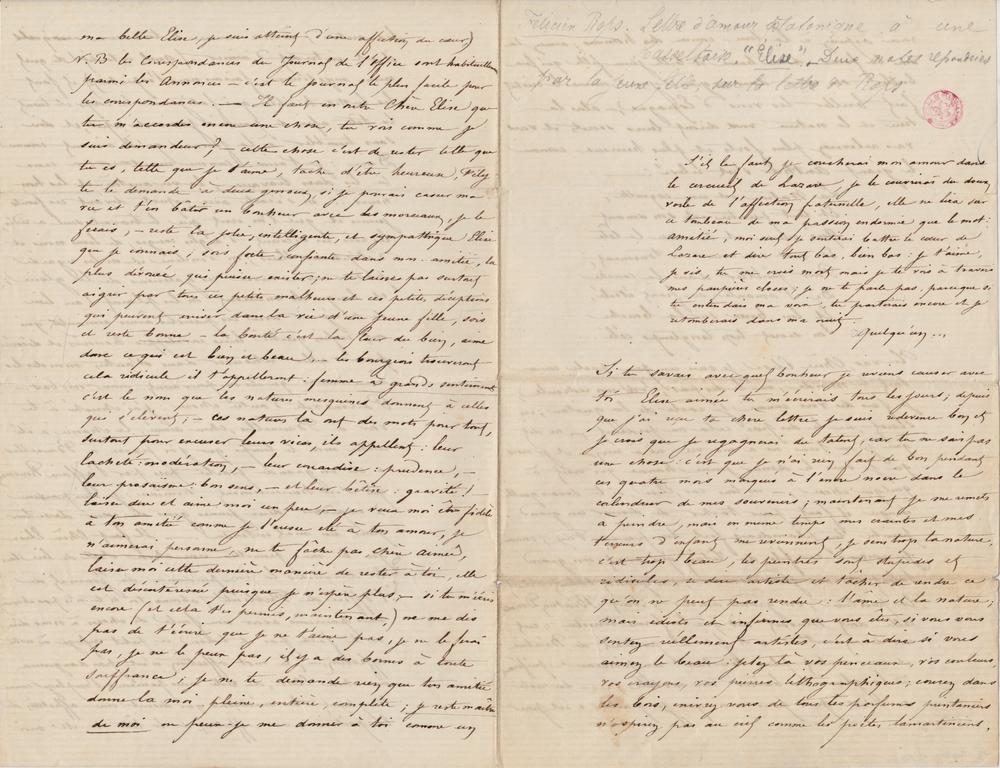 ma belle Elise, je suis atteint d'une affection du cœur)
N.B les Correspondances du Journal de l'office sont habituelles
parmi les Annonces – c'est le journal le plus facile pour
les correspondances. — Il faut en outre Chère Elise que
tu m'accordes encore une chose, tu vois comme je
suis demandeur? – cette chose c'est de rester telle que
tu es, telle que je t'aime, tâche d'être heureuse,
te le demande à deux genoux, si je pouvais casser ma
vie et t'en bâtir un bonheur avec les morceaux, je le
ferais, – reste la jolie, intelligente, et sympathique Elise
que je connais; sois forte, confiante dans mon amitié, la
plus dévouée qui puisse exister; ne te laisses pas surtout
aigrir par tous ces petits malheurs et ces petites déceptions
qui peuvent dans la vie d'une jeune fille, sois
et reste bonne – la bonté c'est la fleur du bien, aime
donc ce qui est bien et beau, – les bourgeois trouveront
cela ridicule il t'appelleront: femme à grands sentiments
c'est le nom que les natures mesquines donnent à celles
qui s'élèvent; – ces natures là ont des mots pour tout,
surtout pour excuser leurs vices, ils appellent: leur
lacheté: modération, – leur couardise: prudence, –
leur prosaïsme: bon sens, – et leur bêtise: gravité! –
laisse dire et aime moi un peu, – je veux moi être fidèle
à ton amitié comme je l'eusse été à ton amour, je
n'aimerai personne, ne te fâche pas chère aimée,
laisse moi cette dernière manière de rester à toi, elle
est désintéressée puisque je n'espère plus; – si tu m'écris
encore (et cela t'es permis, maintenant) ne me dis
pas de t'écrire que je ne t'aime pas, je ne le ferai
pas, je ne le peux pas, il y a des bornes à toute
souffrance; je ne te demande rien que ton amitié
donne la moi pleine, entière, complète; je reste maître
de moi ou peux-je me donner à toi comme un
Félicien Rops. Lettre d'amour platonique à une
"Élise". Deux notes
par la sur la lettre de Rops
S'il le faut, je coucherai mon amour dans
le cercueil de Lazare, je le couvrirai du doux
voile de l'affection fraternelle, elle ne lira sur
ce tombeau de ma passion endormie que le mot:
amitié; moi seul je sentirai battre le cœur de
Lazare et dire tout bas, bien bas: je t'aime,
je vis, tu me crois mort mais je te vois à travers
mes paupières closes; je ne te parle pas, parceque si
tu entendais ma voix, tu partirais encore et je
retomberais dans ma nuit.
Quelqu'un...
Si tu savais avec quel bonheur je reviens causer avec
toi Elise aimée tu m'écrirais tous les jours; depuis
que j'ai reçu ta chère lettre je suis redevenu bon et
je crois que je regagnerai du talent, car tu ne sais pas
une chose: c'est que je n'ai rien fait de bon pendant
ces quatre mois marqués à l'encre noire dans le
calendrier de mes souvenirs; maintenant je me remets
à peindre, mais en même temps mes craintes et mes
terreurs d'enfant me reviennent, je sens trop la nature,
c'est trop beau, les peintres sont stupides et
ridicules, se dire artiste et tâcher de rendre ce
qu'on ne peut pas rendre: l'âme et la nature;
mais idiots et infirmes que vous êtes, si vous vous
sentez réellement artistes, c'est à dire si vous
aimez le beau: jetez là vos pinceaux, vos couleurs
vos crayons, vos pierres lithographiques; courez dans
les bois, enivrez vous de tous les parfums printaniers
n'aspirez pas au ciel comme les poètes, lamartiniens,